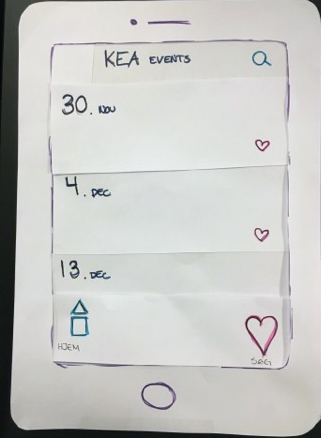 KEA EVENTS
30. NOV
4. DEC
13. DEC
HJEM
SØG